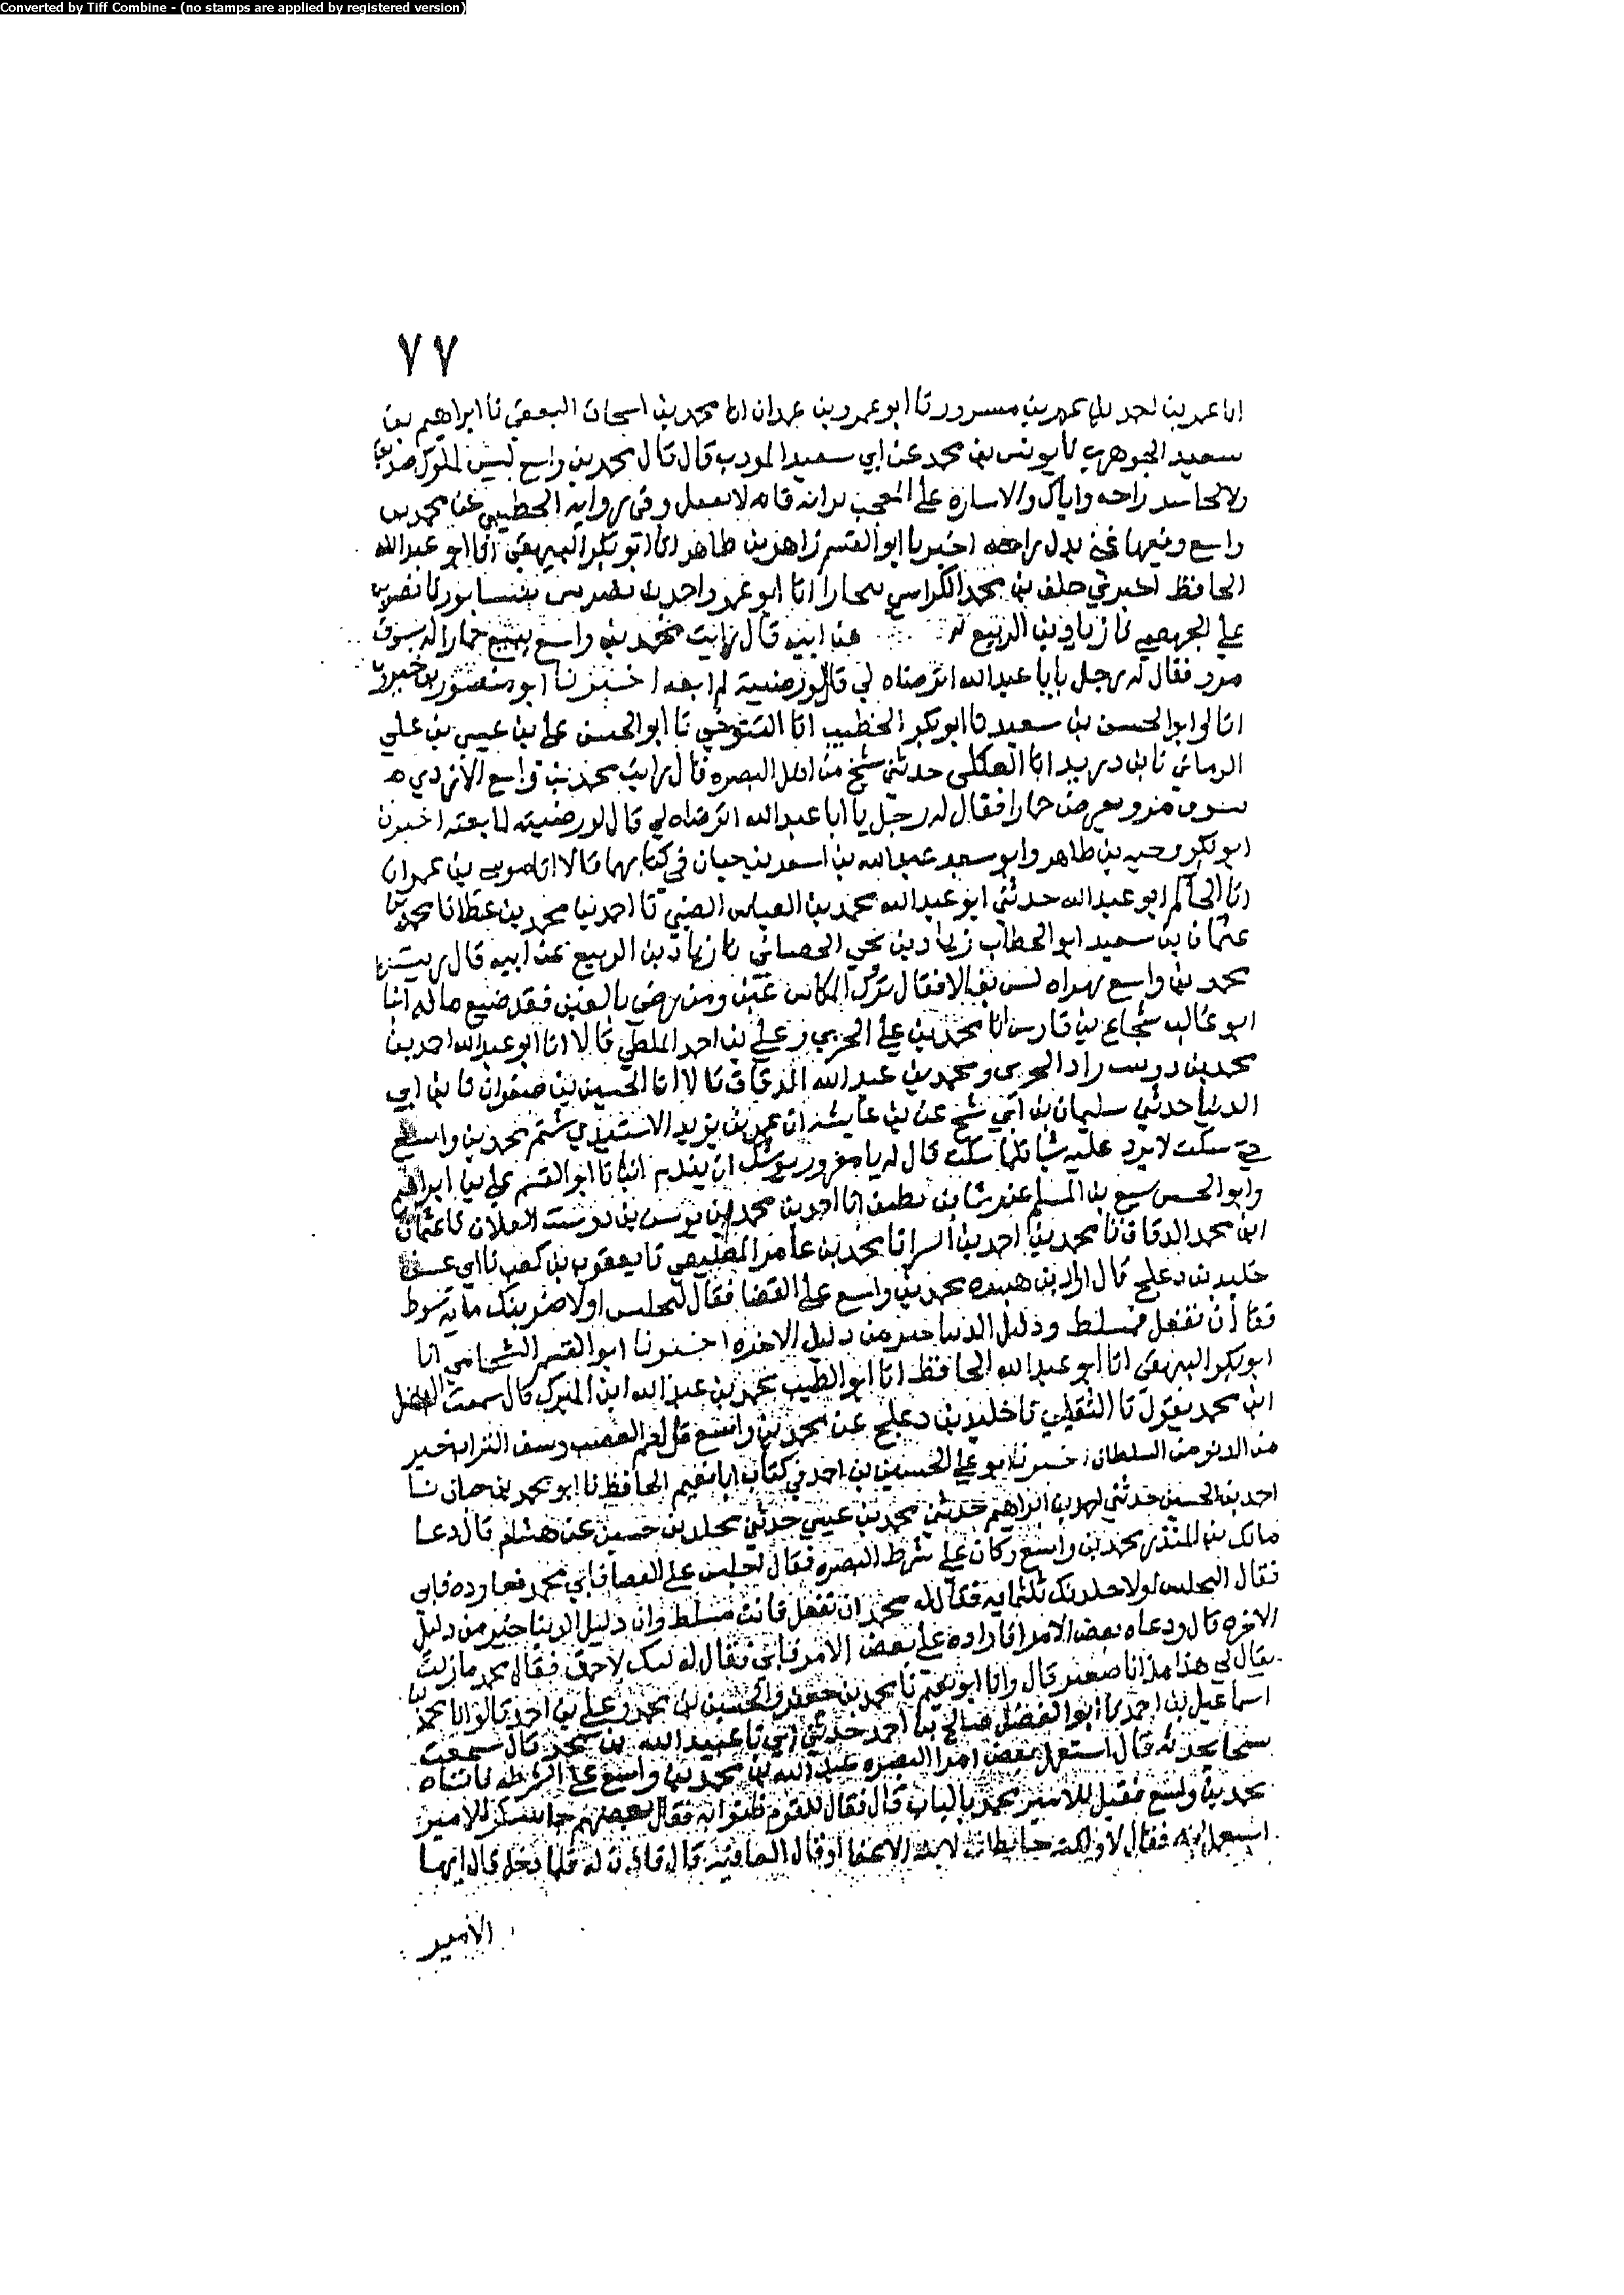 Converted by Tiff Combine - (no stamps are applied by registered version)
٧٧
انا عمر بن احمد بن عمر بن مسرور نا ابو عمرو بن حمدان انا محمد بن اسحاق الثقفي نا ابراهيم بن
سعيد الجوهري نا يونس بن محمد عن ابي سعيد المودب قال قال محمد بن واسع ليس لملوك صديق
ولا لحاسد راحه واياك والاساره على المعجب برايه فانه لا يقبل وفي روايه الخطيب عن محمد بن
واسع اخبرنا ابو القسم زاهر بن طاهر انا ابو بكر البيهقي انا ابو عبد الله
الحافظ اخبرني خلف بن محمد الكرابيسي ببخارا انا ابو عمرو احمد بن نصر بنيسابور نا نصر بن
علي الجهضمي نا زياد بن الربيع عن ابيه قال رايت محمد بن واسع يبيع حمارا له بسوق
مرو فقال له رجل يابا عبد الله اترضاه لي قال لو رضيته لم ابعه اخبرنا ابو منصور بن خيرون
انا وابو الحسن بن سعيد نا ابو بكر الخطيب انا التنوخي نا ابو الحسن علي بن عيسى بن علي
الرماني نا ابن دريد انا العكلي حدثني شيخ من اهل البصره قال رايت محمد بن واسع الازدي
بسوق مرو يعرض حمارا فقال له رجل يا ابا عبد الله اترضاه لي قال لو رضيته لما بعته اخبرنا
ابو بكر وجيه بن طاهر وابو سعد عبد الله بن اسعد بن حيان في كتابهما قالا انا موسى بن عمران
انا الحاكم ابو عبد الله حدثني ابو عبد الله محمد بن العباس الضبي نا احمد بن محمد بن عطا نا محمد بن
عثمان بن سعيد ابو الخطاب زياد بن يحيى الحساني نا زياد بن الربيع عن ابيه قال رايت
محمد بن واسع بهراه فقال ترك المكاس غبن ومن رضي بالغبن فقد ضيع ماله انبا
ابو غالب شجاع بن فارس انا محمد بن علي الحربي وعلي بن احمد الملطي قالا انا ابو عبد الله احمد بن
محمد بن دوست زاد الحربي ومحمد بن عبد الله الدقاق قالا انا الحسين بن صفوان نا ابن ابي
الدنيا حدثني سليمان بن ابي شيخ عن ابن عايشه ان عمر بن يزيد الاسيدي شتم محمد بن واسع
سكت لا يرد عليه شيا فلما سكت قال له يا مغرور يوشك ان يندم انبانا ابو القسم علي بن ابراهيم
وابو الحسن سبيع بن المسلم عن رشا بن نظيف انا احمد بن محمد بن يوسف بن دوست العلاف نا عثمان
ابن محمد الدقاق نا محمد بن احمد بن البرا نا محمد بن عامر نا يعقوب بن كعب نا
خليد بن دعلج قال اراد ابن هبيره محمد بن واسع على القضا فقال لتجلس اولاضربنك مايه سوط
فقال ان تفعل فمسلط وذليل الدنيا خير من ذليل الاخره اخبرنا ابو القسم الشحامي انا
ابو بكر البيهقي انا ابو عبد الله الحافظ انا ابو الطيب محمد بن عبد الله ابن المبرك قال سمعت الفضل
ابن محمد يقول نا النفيلي نا خليد بن دعلج عن محمد بن واسع قال لقم القضب وسف التراب خير
من الدنو من السلطان اخبرنا ابو علي الحسين بن احمد في كتابه انا ابو نعيم الحافظ نا ابو محمد بن حيان نا
احمد بن الحسين حدثني احمد بن ابراهيم حدثني محمد بن عيسى حدثني مخلد بن حسين عن هشام قال دعا
مالك بن المنذر محمد بن واسع وكان على شرط البصره فقال اجلس على القضا فابى محمد فعاوده فابى
فقال لتجلس اولاجلدنك ثلثمايه فقال له محمد ان تفعل فانت مسلط وان ذليل الدنيا خير من ذليل
الاخره قال ودعاه بعض الامرا فاراده على بعض الامر فابى فقال له انك لاحمق فقال محمد مازلت
يقال لي هذا مذ انا صغير قال وانا ابو نعيم نا محمد بن جعفر والحسين بن محمد وعلي بن احمد قالوا نا محمد بن
اسماعيل بن احمد نا ابو الفضل صالح بن احمد حدثني ابي نا عبيد الله بن محمد قال سمعت
شيخا يحدثه قال استعمل بعض امرا البصره عبد الله بن محمد بن واسع على الشرطه فاتاه
محمد بن واسع فقيل للامير محمد بالباب قال فقال للقوم ظنوا به فقال بعضهم جا يشكر للامير
استعمل ابنه فقال لا ولكنه جا يطلب لابنه الاعفا او قال العافيه قال فاذن له فلما دخل قال ايها
الامير